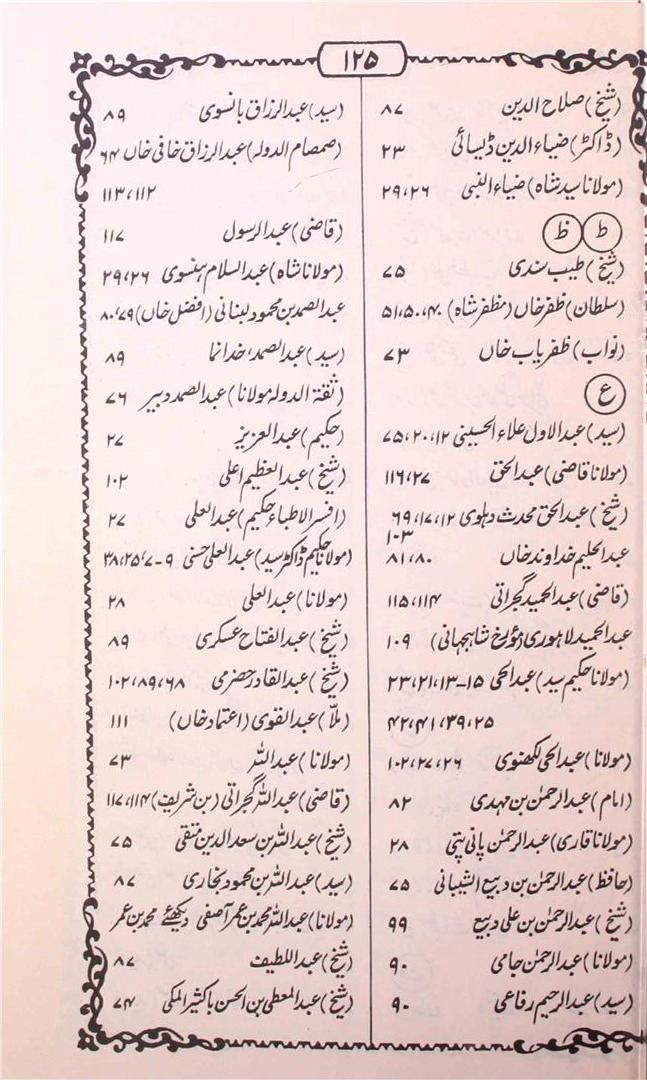 ۱۲۵
(شیخ) صلاح الدین ۸۷
(ڈاکٹر) ضیاء الدین ڈیسائی ۲۳
(مولانا سید شاہ) ضیاء النبی ۲۶، ۲۹
ط ظ
(شیخ) طیب سندی ۷۵
(سلطان) ظفر خاں (مظفر شاہ) ۴۰، ۵۰، ۵۱
(نواب) ظفریاب خاں ۷۳
ع
(سید) عبدالاول علاء الحسینی ۱۲، ۲۰، ۷۵
(مولانا قاضی) عبدالحق ۲۷، ۱۱۶
(شیخ) عبدالحق محدث دہلوی ۱۲، ۱۷، ۶۹
۱۰۳
عبدالحلیم خداوند خاں ۸۰، ۸۱
(قاضی) عبدالحمید گجراتی ۱۱۴، ۱۱۵
عبدالحمید لاہوری (مؤرخ شاہجہانی) ۱۰۹
(مولانا حکیم سید) عبدالحی ۱۵-۱۳، ۲۱، ۲۳
۲۵، ۳۹، ۴۱، ۴۲
(مولانا) عبدالحی لکھنوی ۲۶، ۲۷، ۱۰۲
(امام) عبدالرحمٰن بن مہدی ۸۲
(مولانا قاری) عبدالرحمٰن پانی پتی ۲۸
(حافظ) عبدالرحمٰن بن دبیع الشیبانی ۷۵
(شیخ) عبدالرحمٰن بن علی دبیع ۹۹
(مولانا) عبدالرحمٰن جامی ۹۰
(سید) عبدالرحیم رفاعی ۹۰
(سید) عبدالرزاق بانسوی ۸۹
(صمصام الدولہ) عبدالرزاق خافی خاں ۶۴
۱۱۲، ۱۱۳
(قاضی) عبدالرسول ۱۱۷
(مولانا شاہ) عبدالسلام ہنسوی ۲۶، ۲۹
عبدالصمد بن محمود لبنانی (افضل خاں) ۷۹، ۸۰
(سید) عبدالصمد، خدانما ۸۹
(ثقۃ الدولہ مولانا) عبدالصمد دبیر ۷۶
(حکیم) عبدالعزیز ۲۷
(شیخ) عبدالعظیم اعلی ۱۰۲
(افسر الاطباء حکیم) عبدالعلی ۲۷
(مولانا حکیم ڈاکٹر سید) عبدالعلی حسنی ۹-۷، ۲۵، ۳۸
(مولانا) عبدالعلی ۲۸
(شیخ) عبدالفتاح عسکری ۸۹
(شیخ) عبدالقادر حضرمی ۶۸، ۸۹، ۱۰۲
(ملّا) عبدالقوی (اعتماد خاں) ۱۱۱
(مولانا) عبداللہ ۷۳
(قاضی) عبداللہ گجراتی (بن شریف) ۱۱۴، ۱۱۷
(شیخ) عبداللہ بن سعد الدین متقی ۷۵
(سید) عبداللہ بن محمود بخاری ۸۷
(مولانا) عبداللہ محمد بن عمر آصفی دیکھئے محمد بن عمر
(شیخ) عبداللطیف ۸۷
(شیخ) عبدالمعطی بن الحسن باکثیر المکی ۷۴